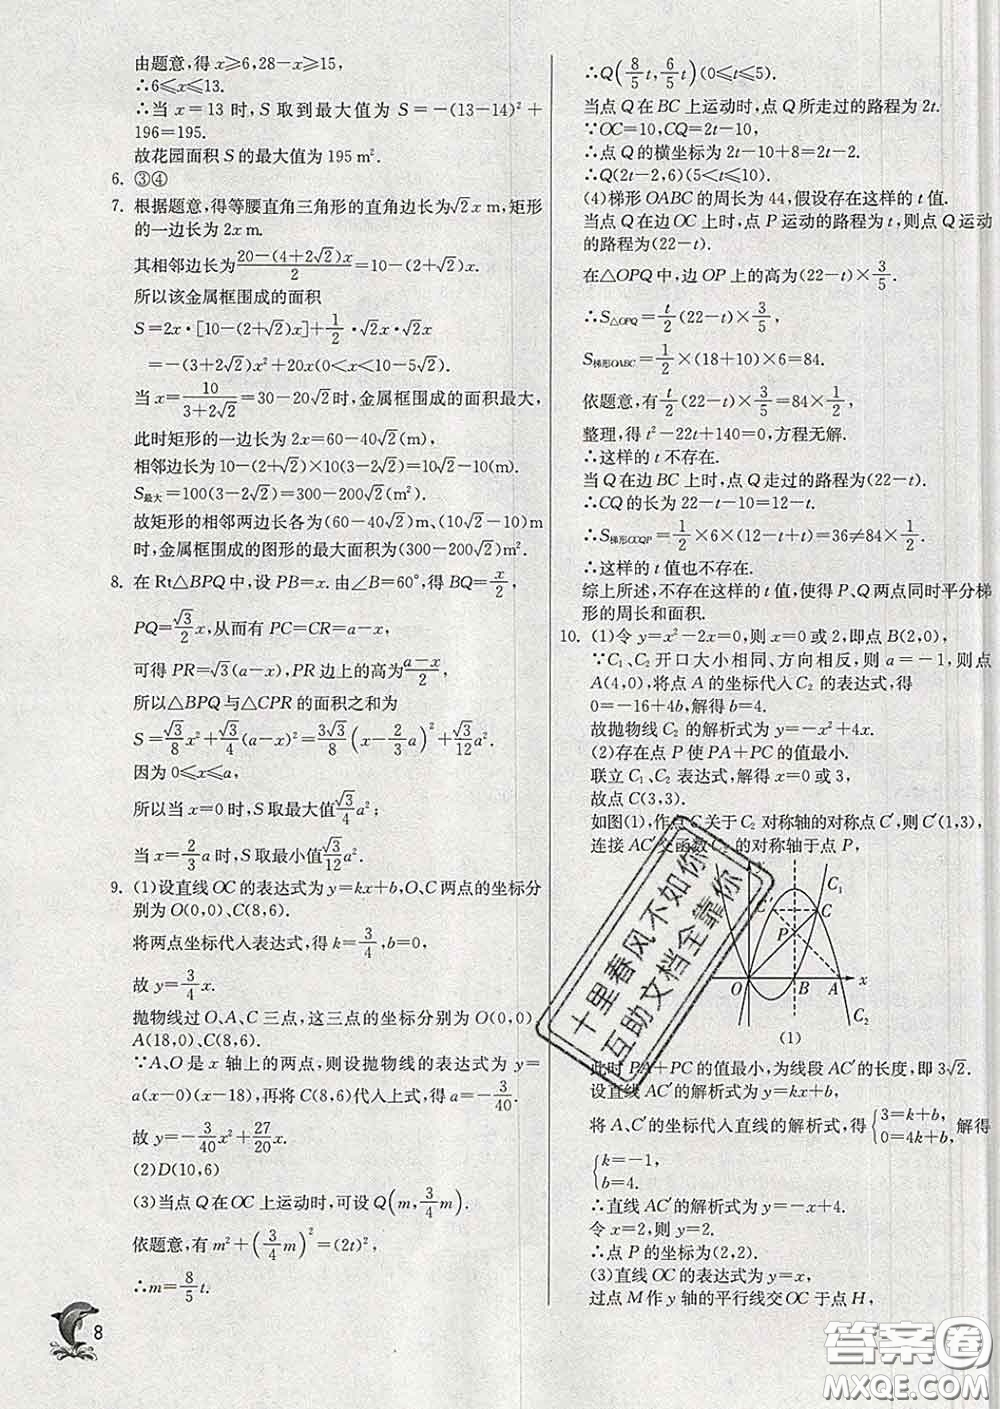 由题意,得 x⩾6,28−x⩾15,
∴6⩽x⩽13.
∴当 x=13 时,S 取到最大值为 S=−(13−14)²+
196=195.
故花园面积 S 的最大值为 195 m².
6. ③④
7. 根据题意,得等腰直角三角形的直角边长为√2x m,矩形
的一边长为 2x m.
其相邻边长为(20−(4+2√2)x)/2=10−(2+√2)x.
所以该金属框围成的面积
S=2x·[10−(2+√2)x]+1/2·√2x·√2x
=−(3+2√2)x²+20x(0<x<10−5√2).
当 x=10/(3+2√2)=30−20√2时,金属框围成的面积最大,
此时矩形的一边长为 2x=60−40√2(m),
相邻边长为 10−(2+√2)×10(3−2√2)=10√2−10(m).
S最大=100(3−2√2)=300−200√2(m²).
故矩形的相邻两边长各为(60−40√2)m、(10√2−10)m
时,金属框围成的图形的最大面积为(300−200√2)m².
8. 在 Rt△BPQ 中,设 PB=x. 由∠B=60°,得 BQ=x/2,
PQ=√3/2x,从而有 PC=CR=a−x,
可得 PR=√3(a−x),PR 边上的高为(a−x)/2,
所以△BPQ 与△CPR 的面积之和为
S=√3/8x²+√3/4(a−x)²=3√3/8(x−2/3a)²+√3/12a².
因为 0⩽x⩽a,
所以当 x=0 时,S 取最大值√3/4a²;
当 x=2/3a 时,S 取最小值√3/12a².
9. (1)设直线 OC 的表达式为 y=kx+b,O、C 两点的坐标分
别为 O(0,0)、C(8,6).
将两点坐标代入表达式,得 k=3/4,b=0,
故 y=3/4x.
抛物线过 O、A、C 三点,这三点的坐标分别为 O(0,0)、
A(18,0)、C(8,6).
∵A、O 是 x 轴上的两点,则设抛物线的表达式为 y=
a(x−0)(x−18),再将 C(8,6)代入上式,得 a=−3/40.
故 y=−3/40x²+27/20x.
(2)D(10,6)
(3)当点 Q 在 OC 上运动时,可设 Q(m,3/4m).
依题意,有 m²+(3/4m)²=(2t)²,
∴m=8/5t.
8
∴Q(8/5t,6/5t)(0⩽t⩽5).
当点 Q 在 BC 上运动时,点 Q 所走过的路程为 2t.
∵OC=10,CQ=2t−10,
∴点 Q 的横坐标为 2t−10+8=2t−2.
∴Q(2t−2,6)(5<t⩽10).
(4)梯形 OABC 的周长为 44,假设存在这样的 t 值.
当点 Q 在边 OC 上时,点 P 运动的路程为 t,则点 Q 运动
的路程为(22−t).
在△OPQ 中,边 OP 上的高为(22−t)×3/5.
∴S△OPQ=t/2(22−t)×3/5,
S梯形OABC=1/2×(18+10)×6=84.
依题意,有t/2(22−t)×3/5=84×1/2,
整理,得 t²−22t+140=0,方程无解.
∴这样的 t 不存在.
当 Q 在边 BC 上时,点 Q 走过的路程为(22−t).
∴CQ 的长为 22−t−10=12−t.
∴S梯形OCQP=1/2×6×(12−t+t)=36≠84×1/2.
∴这样的 t 值也不存在.
综上所述,不存在这样的 t 值,使得 P、Q 两点同时平分梯
形的周长和面积.
10. (1)令 y=x²−2x=0,则 x=0 或 2,即点 B(2,0),
∵C₁、C₂ 开口大小相同、方向相反,则 a=−1,则点
A(4,0),将点 A 的坐标代入 C₂ 的表达式,得
0=−16+4b,解得 b=4.
故抛物线 C₂ 的解析式为 y=−x²+4x.
(2)存在点 P 使 PA+PC 的值最小.
联立 C₁、C₂ 表达式,解得 x=0 或 3,
故点 C(3,3).
如图(1),作点 C 关于 C₂ 对称轴的对称点 C′,则 C′(1,3),
连接 AC′交函数 C₂ 的对称轴于点 P,
C₁
C
P
O B A x
C₂
(1)
此时 PA+PC 的值最小,为线段 AC′的长度,即 3√2.
设直线 AC′的解析式为 y=kx+b,
将 A、C′的坐标代入直线的解析式,得{3=k+b,0=4k+b, 解得
{k=−1,
b=4.
∴直线 AC′的解析式为 y=−x+4.
令 x=2,则 y=2.
∴点 P 的坐标为(2,2).
(3)直线 OC 的表达式为 y=x,
过点 M 作 y 轴的平行线交 OC 于点 H,
十里春风不如你
互助文档全靠你
答案圈
MXQE.COM